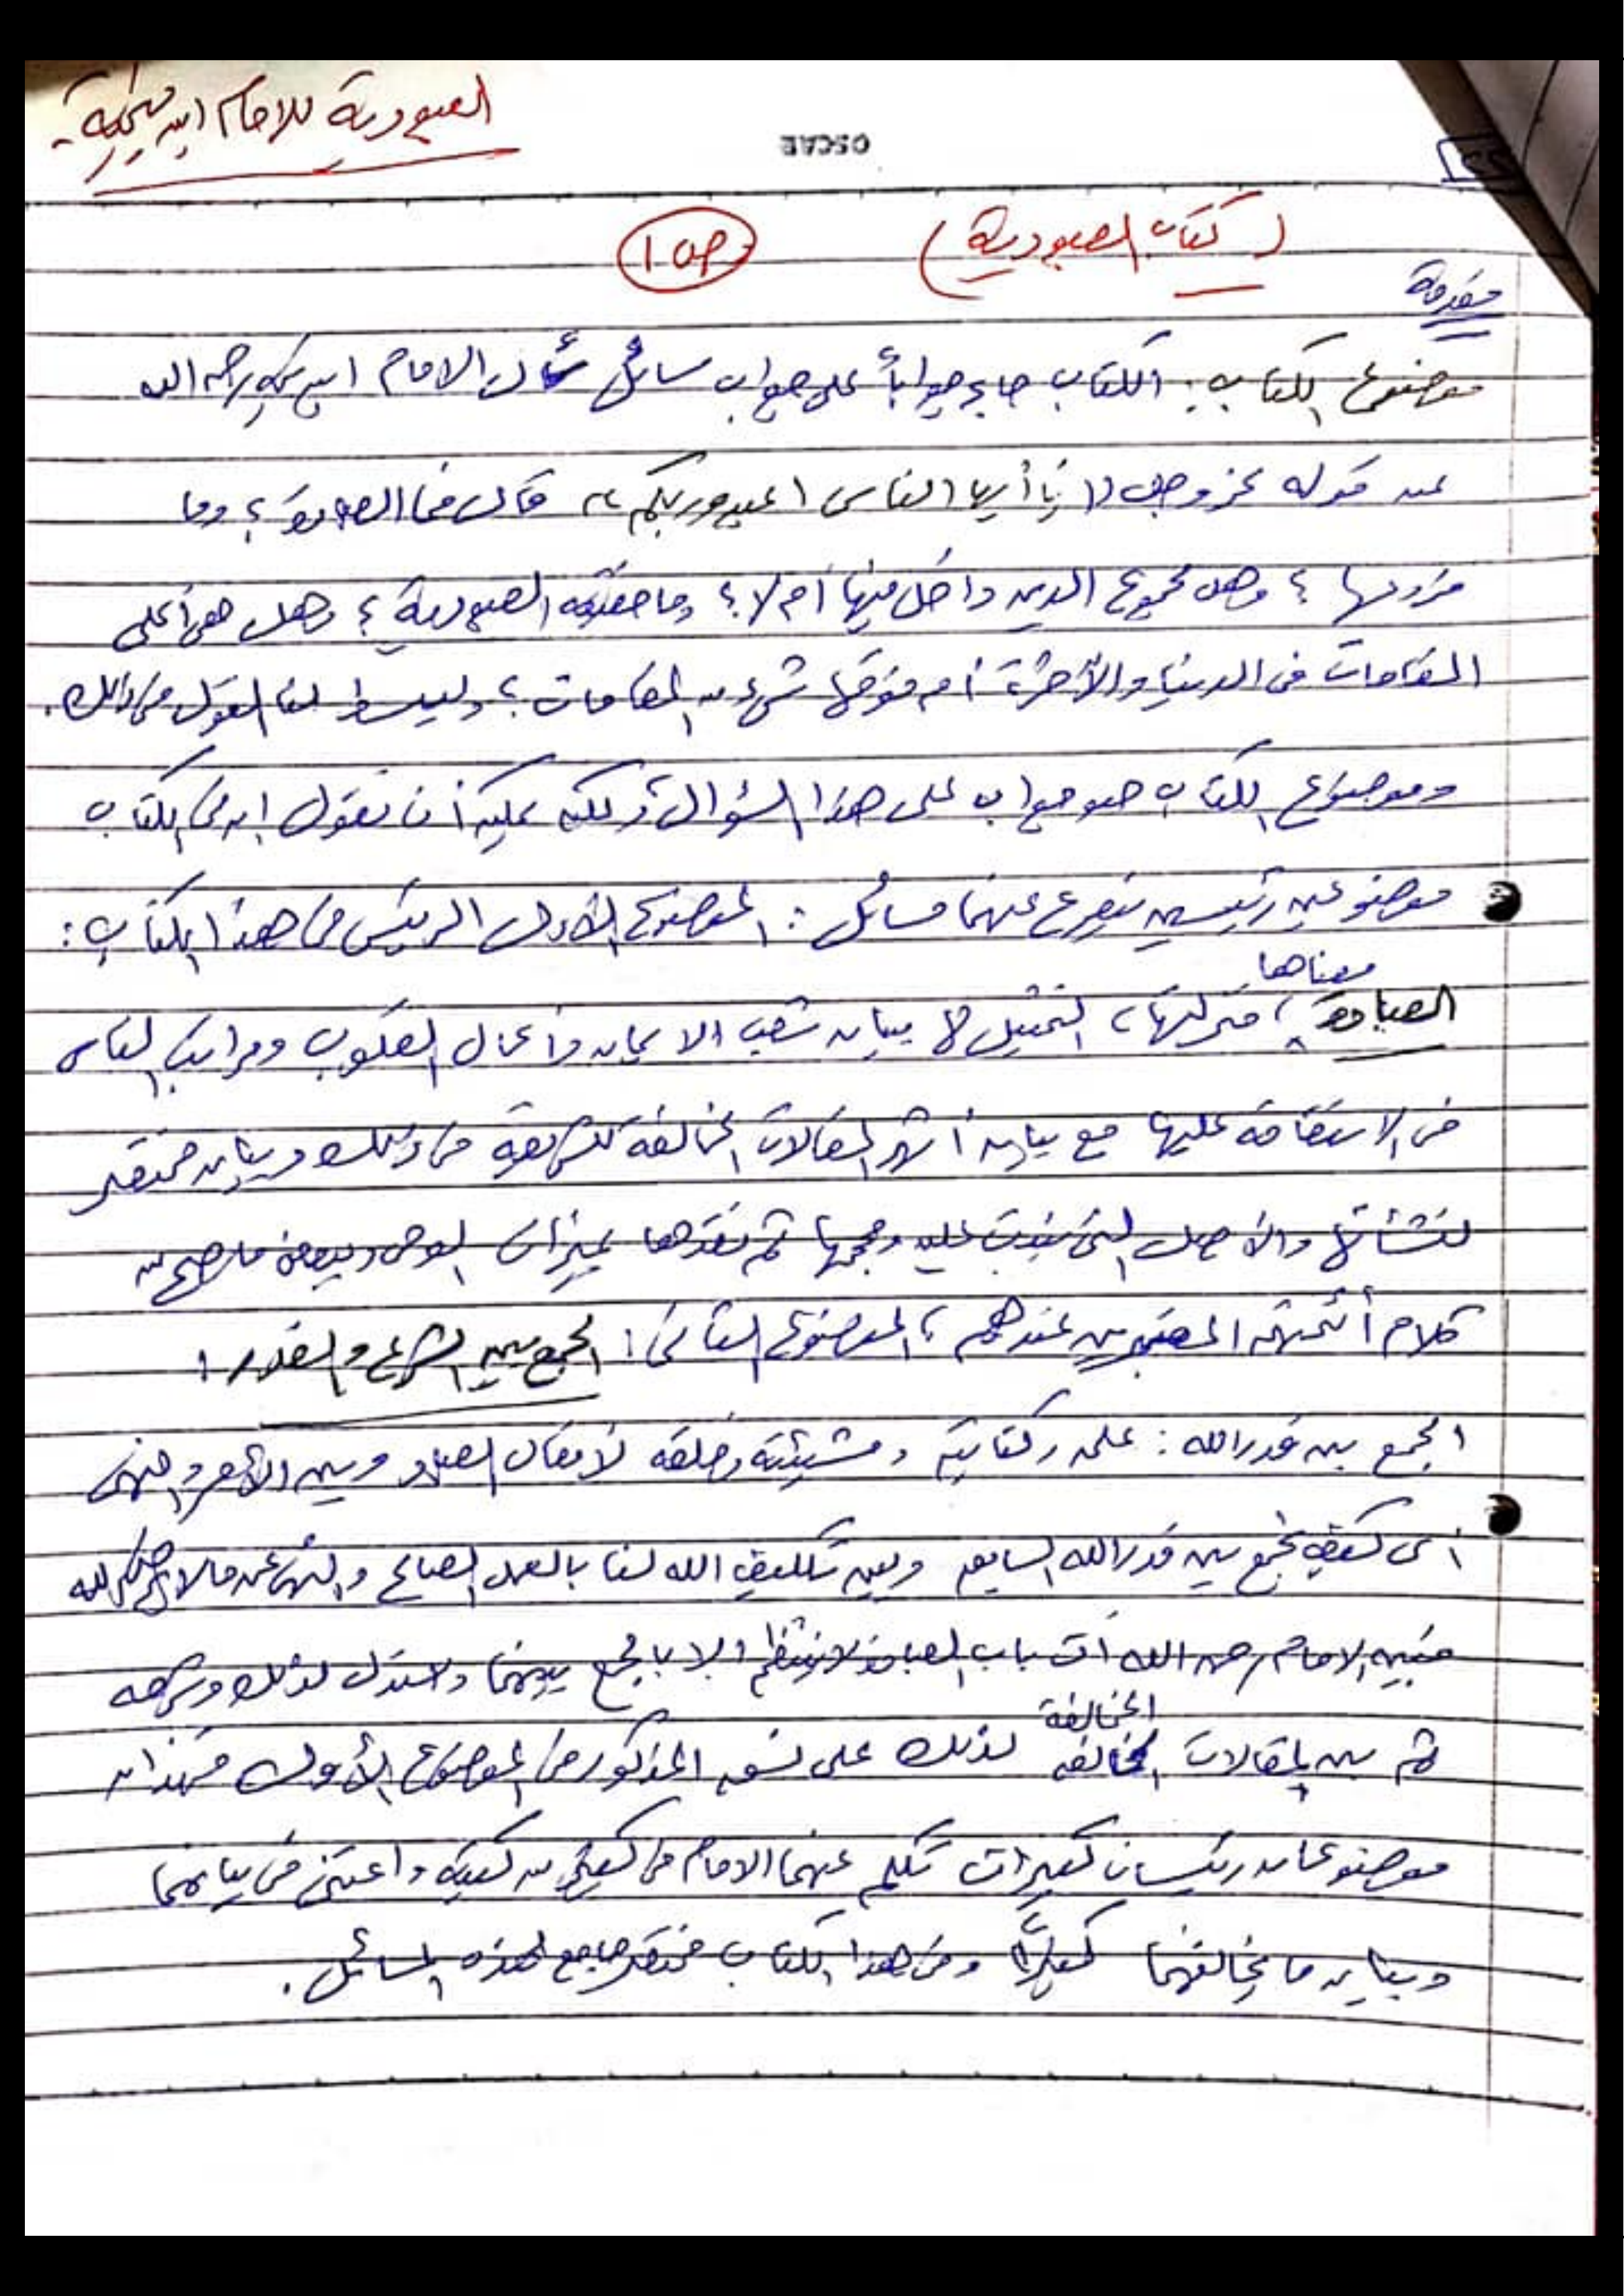 العبودية للامام ابن تيمية
OSCAR
(كتاب العبودية) ص١
مقدمة
موضوع الكتاب: الكتاب جاء جواباً على جواب سائل سأل الامام ابن تيمية رحمه الله
عن قوله عز وجل (( يا أيها الناس اعبدوا ربكم )) قال فما العبادة ؟ وما
فروعها ؟ وهل مجموع الدين داخل فيها أم لا ؟ وما حقيقة العبودية ؟ وهل هى أعلى
المقامات فى الدنيا والأخرة أم فوقها شىء من المقامات ؟ وليبسط لنا القول فى ذلك.
وموضوع الكتاب هو جواب على هذا السؤال ولكن يمكن أن نقول إن فى الكتاب
موضوعين رئيسين يتفرع عنهما مسائل : الموضوع الأول الرئيس فى هذا الكتاب :
معناها
العبادة ، منزلتها ، التمثيل لها ببيان شعب الايمان وأعمال القلوب ومراتب الناس
فى الاستقامة عليها مع بيان أشهر المقالات المخالفة للشريعة فى ذلك وبيان مختصر
لنشأتها والأصل التى بنيت عليه وحججها ثم نقدها بميزان الوحى وببعض ما صح من
كلام أئمتهم المعتبرين عندهم ، الموضوع الثانى : الجمع بين الشرع والقدر :
الجمع بين قدر الله : علمه وكتابته ومشيئته وخلقه لأفعال العباد وبين الأمر والنهى
أى كيف نجمع بين قدر الله السابق وبين تكليف الله لنا بالعمل الصالح والنهى عن ما لا يرضى الله
فبين الامام رحمه الله أن باب العبادة لا ينتظم إلا بالجمع بينهما واستدل لذلك وشرحه
المخالفة
ثم بين المقالات المخالفه لذلك على نسق المذكور فى الموضوع الأول فهذان
موضوعان رئيسان كبيران تكلم عنهما الامام فى كثير من كتبه واعتنى فى بيانهما
وبيان ما يخالفهما كثيراً وفى هذا الكتاب مختصر جامع لهذه المسائل .